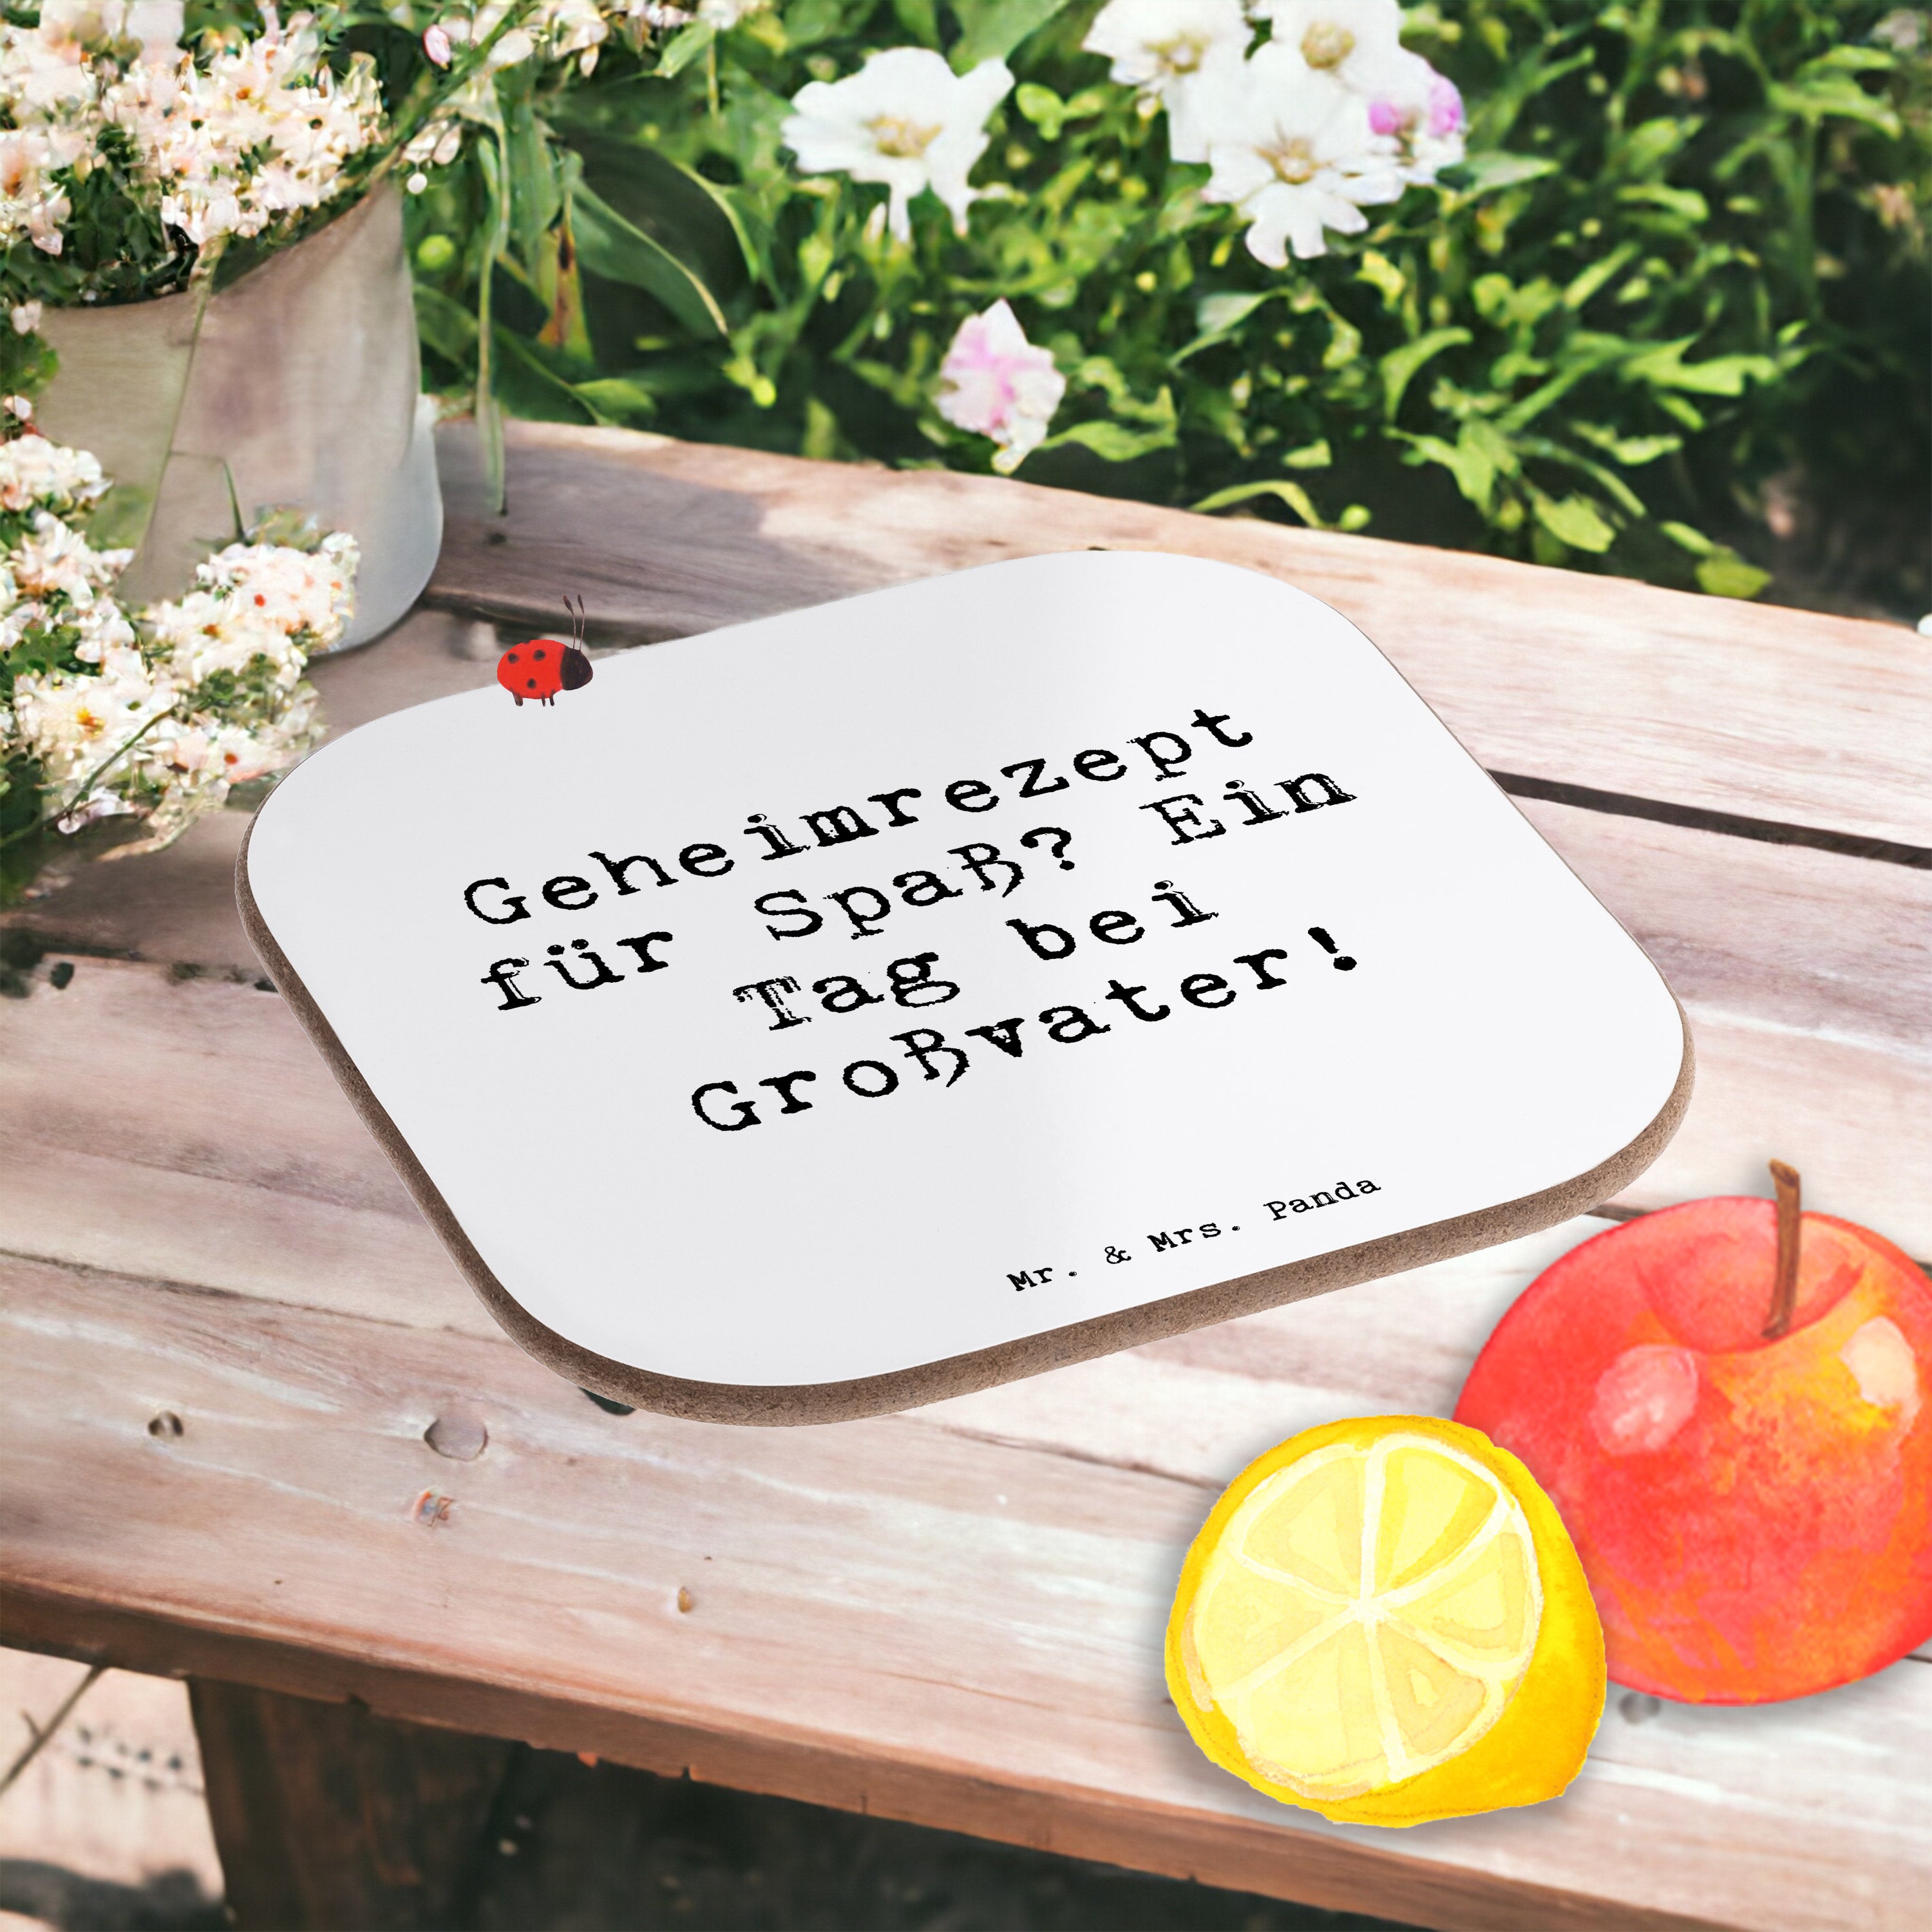 Geheimrezept
für Spaß? Ein
Tag bei
Großvater!
Mr. & Mrs. Panda